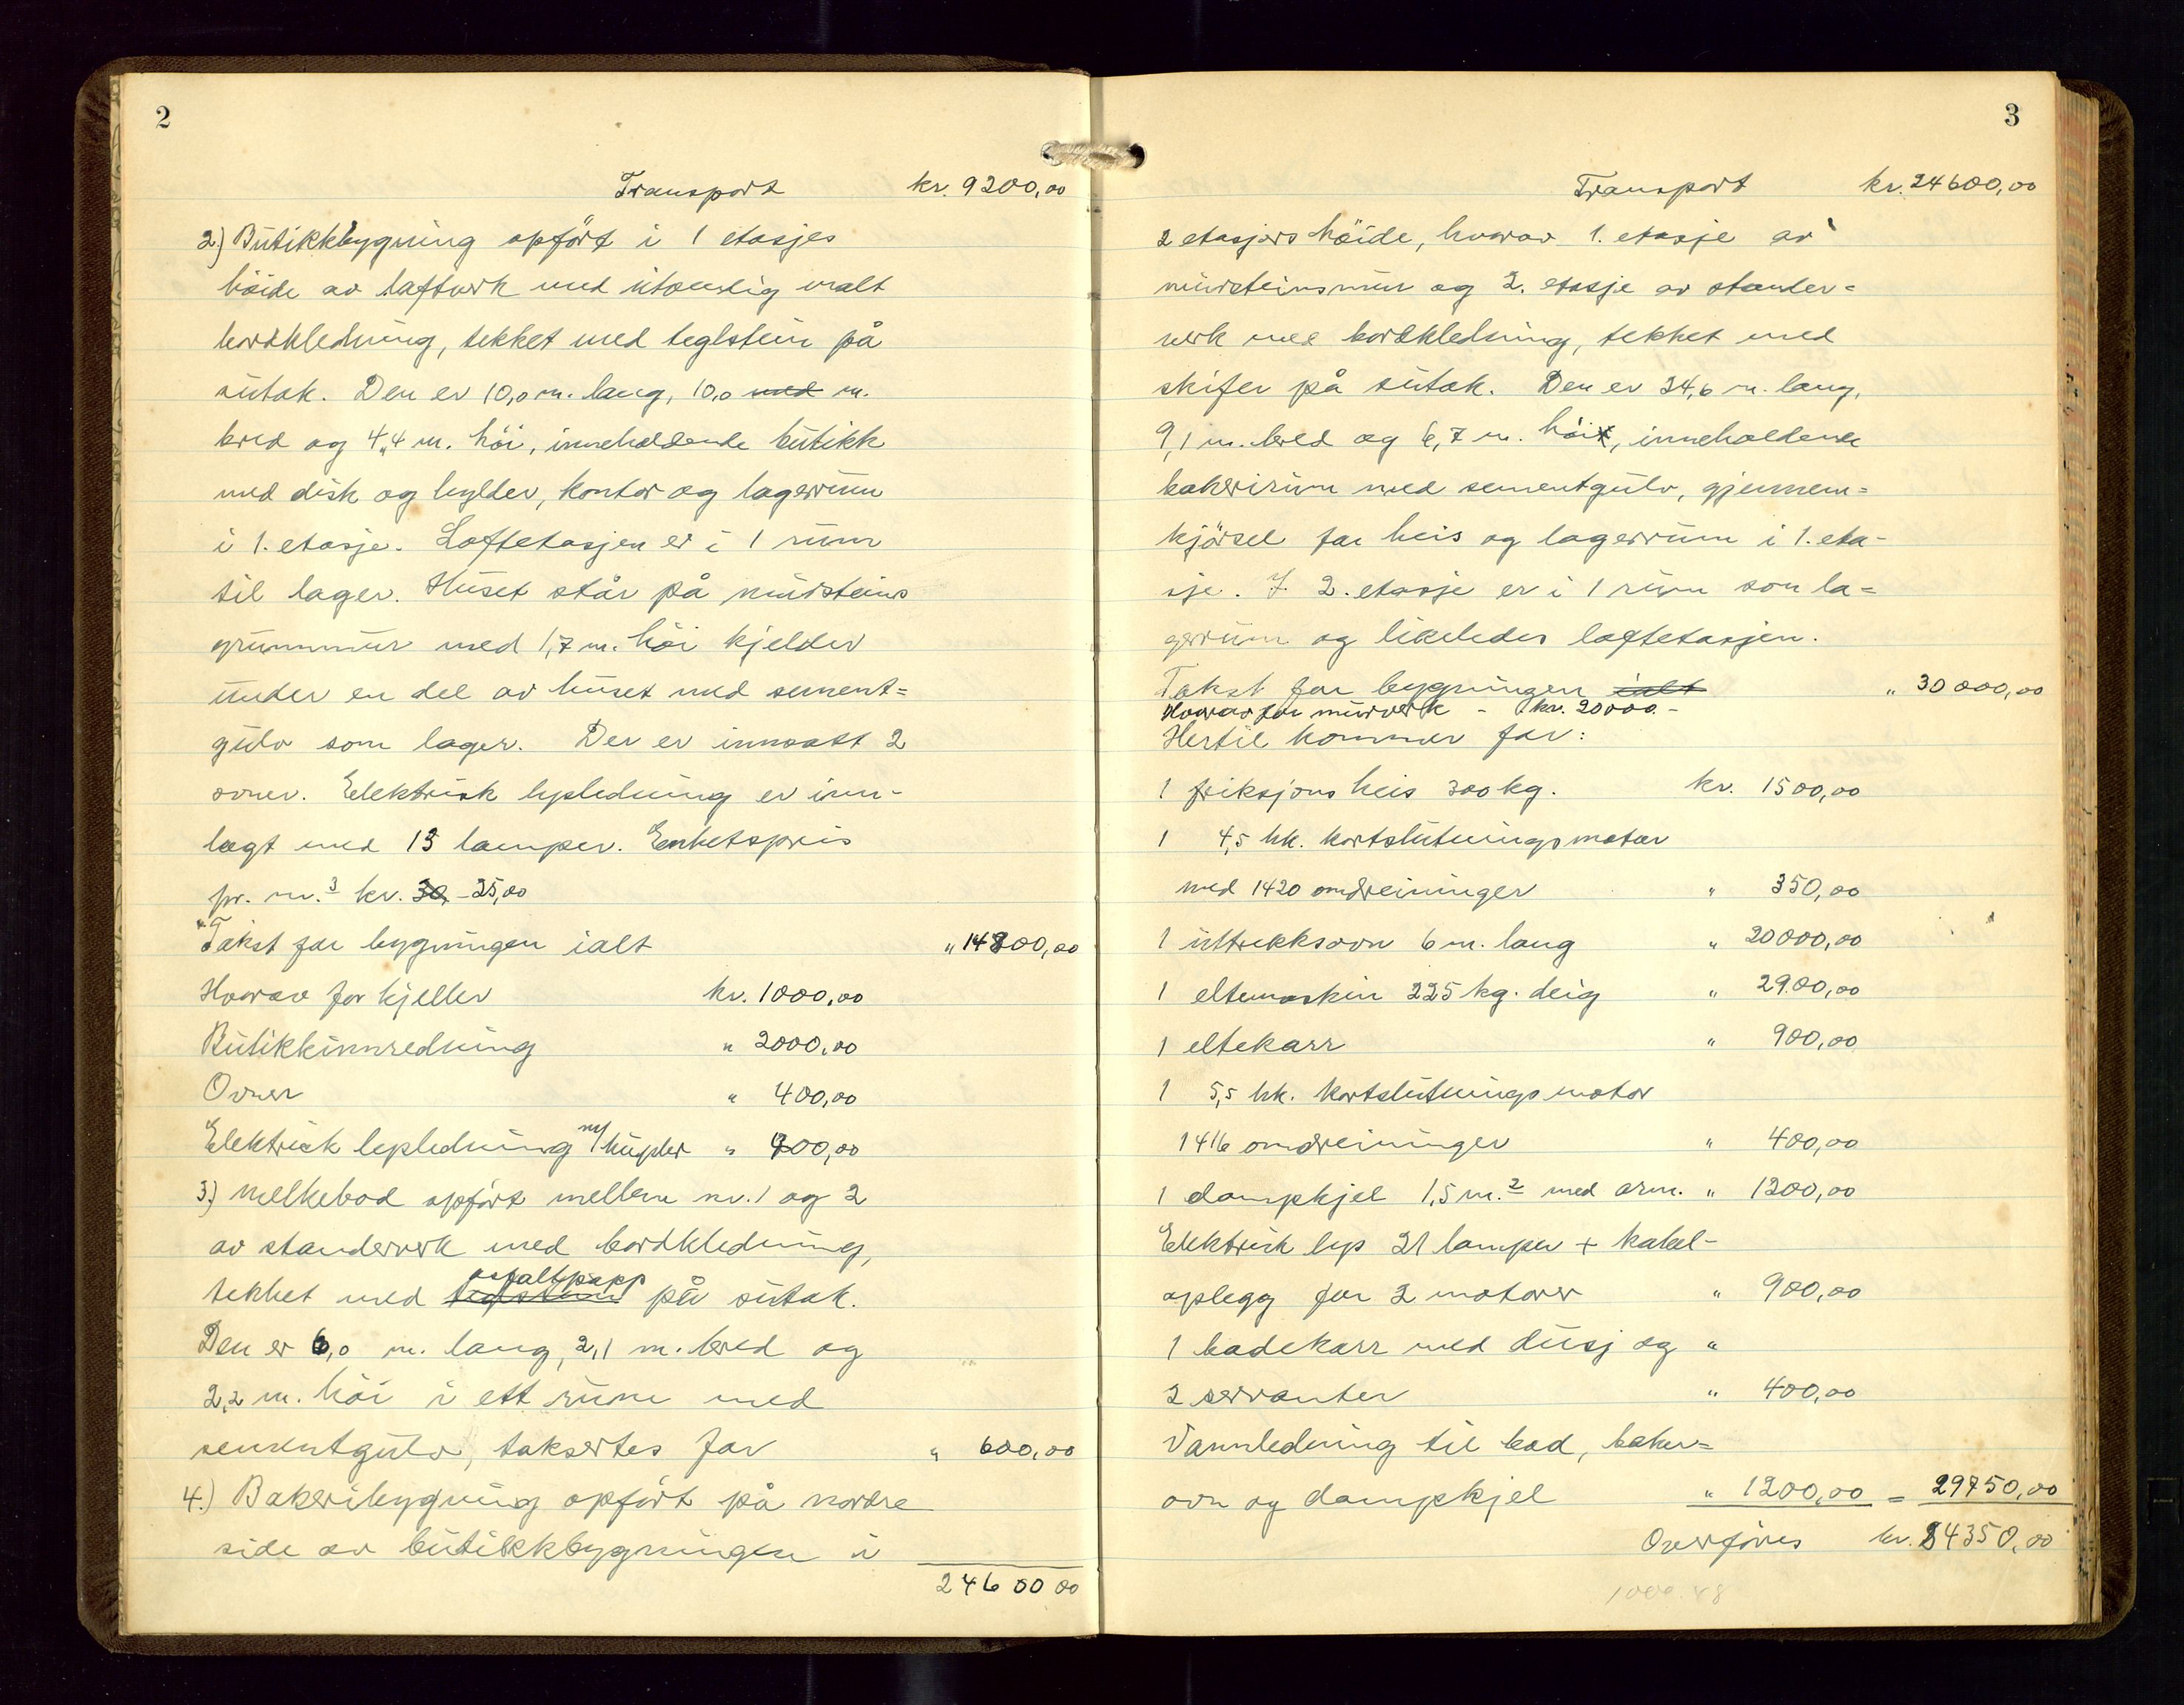 2
Transport kr. 9200,00
2.) Butikkbygning opført i 1 etasjes
høide av laftverk med utvendig malt
bordkledning, tekket med teglstein på
sutak. Den er 10,0 m. lang, 10,0 med m.
bred og 4,4 m. høi, inneholdende butikk
med disk og hylder, kontor og lagerrum
i 1. etasje. Loftetasjen er i 1 rum
til lager. Huset står på mursteins
grunnmur med 1,7 m. høi kjelder
under en del av huset med sement=
gulv som lager. Der er innsatt 2
ovner. Elektrisk lysledning er inn-
lagt med 13 lamper. Enhetspris
pr. m.³ kr. 30,- 25,00
Takst for bygningen ialt " 14800,00
Hvorav for kjeller kr. 1000,00
Butikkinnredning " 2000,00
Ovner " 400,00
Elektrisk lysledning m/ kupler " 400,00
3.) Melkebod opført mellem nr. 1 og 2
av standerverk med bordkledning,
asfaltpapp
tekket med teglstein på sutak.
Den er 6,0 m. lang, 2,1 m. bred og
2,2 m. høi i ett rum med
sementgulv, taksertes for " 600,00
4.) Bakeribygning opført på nordre
side av butikkbygningen i
24600 00
3
Transport kr. 24600,00
2 etasjers høide, hvorav 1. etasje av
mursteinsmur og 2. etasje av stander=
verk med bordkledning, tekket med
skifer på sutak. Den er 24,6 m. lang,
9,1 m. bred og 6,7 m. høi, inneholdende
bakerirum med sementgulv, gjennem=
kjørsel for heis og lagerrum i 1. eta-
sje. I 2. etasje er i 1 rum som la=
gerrum og likeledes loftetasjen.
Takst for bygningen ialt " 30000,00
Hvorav for murverk - kr. 20000.-
Hertil kommer for:
1 friksjons heis 300 kg. kr. 1500,00
1 4,5 hk. kortslutningsmotor
med 1420 omdreininger " 350,00
1 uttrekksovn 6 m. lang " 20000,00
1 eltemaskin 225 kg. deig " 2900,00
1 eltekarr " 900,00
1 5,5 hk. kortslutnings motor
1416 omdreininger " 400,00
1 dampkjel 1,5 m.² med arm. " 1200,00
Elektrisk lys 21 lamper + kabel-
oplegg for 2 motorer " 900,00
1 badekarr med dusj og "
2 servanter " 400,00
Vannledning til bad, baker=
ovn og dampkjel " 1200,00 = 29750,00
Overføres kr. 84350,00